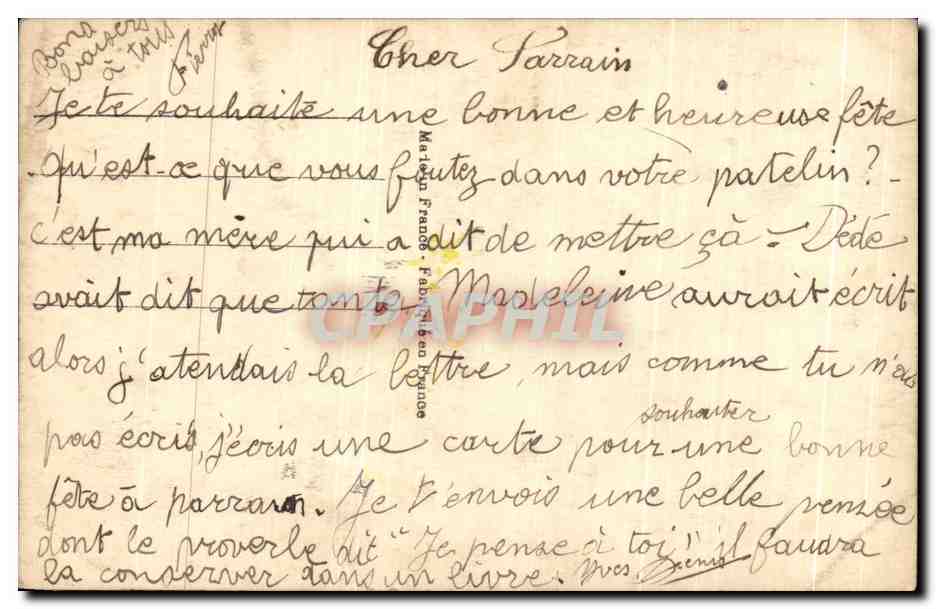 Bons
baisers
à tous
Pierrot
Cher Parrain
Je te souhaite une bonne et heureuse fête
Qu'est-ce que vous foutez dans votre patelin? -
c'est ma mère qui a dit de mettre çà - Dédé
avait dit que tante Madeleine aurait écrit
alors j'atendais la lettre, mais comme tu n'as
pas écris, j'écris une carte pour souhaiter une bonne
fête à parrain. Je t'envois une belle pensée
dont le proverbe dit "Je pense à toi" il faudra
la conserver dans un livre. Yves Denis
Made in France - Fabriqué en France
CPAPHIL